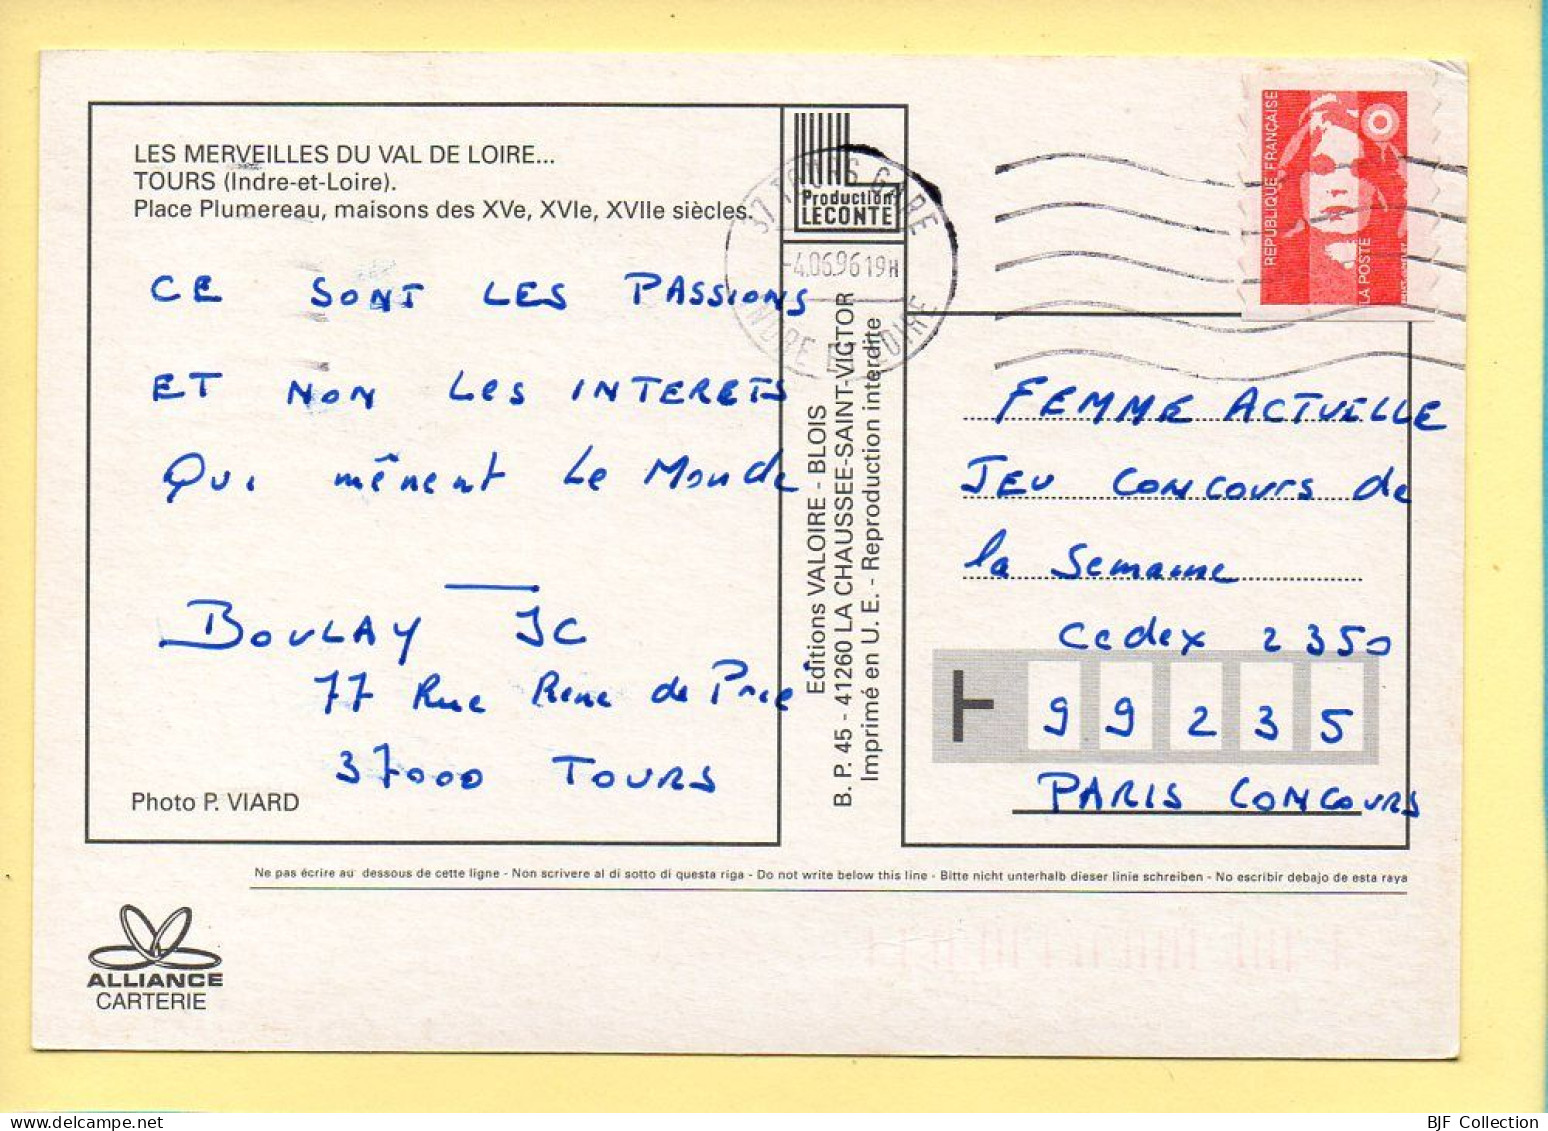 LES MERVEILLES DU VAL DE LOIRE...
TOURS (Indre-et-Loire).
Place Plumereau, maisons des XVe, XVIe, XVIIe siècles.
CE SONT LES PASSIONS
ET NON LES INTERETS
QUI mênent Le Monde
BOULAY JC
77 Rue Rene de Prie
37000 TOURS
Photo P. VIARD
Production
LECONTE
37 TOURS GARE
-4.06.96 19H
INDRE ET LOIRE
Editions VALOIRE - BLOIS
B. P. 45 - 41260 LA CHAUSSEE-SAINT-VICTOR
Imprimé en U. E. - Reproduction interdite
REPUBLIQUE FRANÇAISE
LA POSTE
FEMME ACTUELLE
JEU CONCOURS de
la Semaine
Cedex 2350
99235
PARIS CONCOURS
Ne pas écrire au dessous de cette ligne - Non scrivere al di sotto di questa riga - Do not write below this line - Bitte nicht unterhalb dieser linie schreiben - No escribir debajo de esta raya
ALLIANCE
CARTERIE
BJF Collection